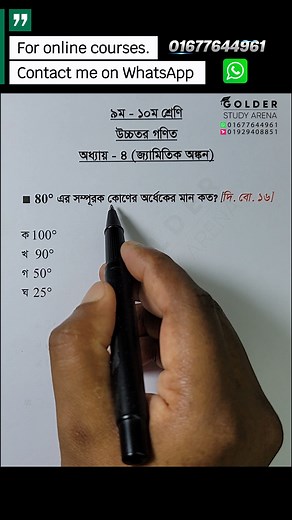 For online courses. 01677644961
Contact me on WhatsApp
GOLDER
STUDY ARENA
01677644961
01929408851
৯ম - ১০ম শ্রেণি
উচ্চতর গণিত
অধ্যায় - ৪ (জ্যামিতিক অঙ্কন)
■ 80° এর সম্পূরক কোণের অর্ধেকের মান কত? [দি. বো. ১৬]
ক 100°
খ 90°
গ 50°
ঘ 25°